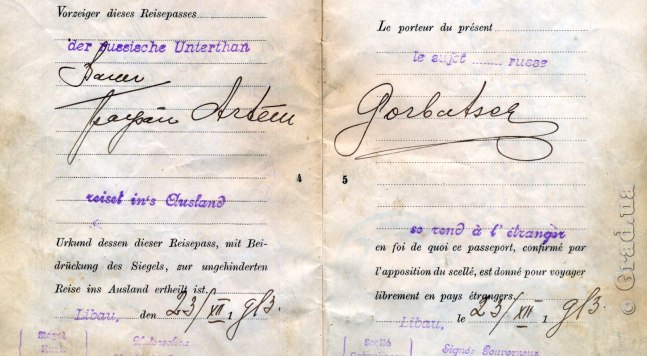 Vorzeiger dieses Reisepasses
der russische Unterthan
Bauer
Artem
reiset in's Ausland
Urkund dessen dieser Reisepass, mit Bei-
drückung des Siegels, zur ungehinderten
Reise ins Ausland ertheilt ist.
Libau, den 23/XII 1913.
Siegel
4
Le porteur du présent
le sujet russe
Gorbatsch
5
se rend à l'étranger
en foi de quoi ce passeport, confirmé par
l'apposition du scellé, est donné pour voyager
librement en pays étrangers.
Libau, le 23/XII 1913.
Scellé
Signé: Gouverneur
© Grad.ua